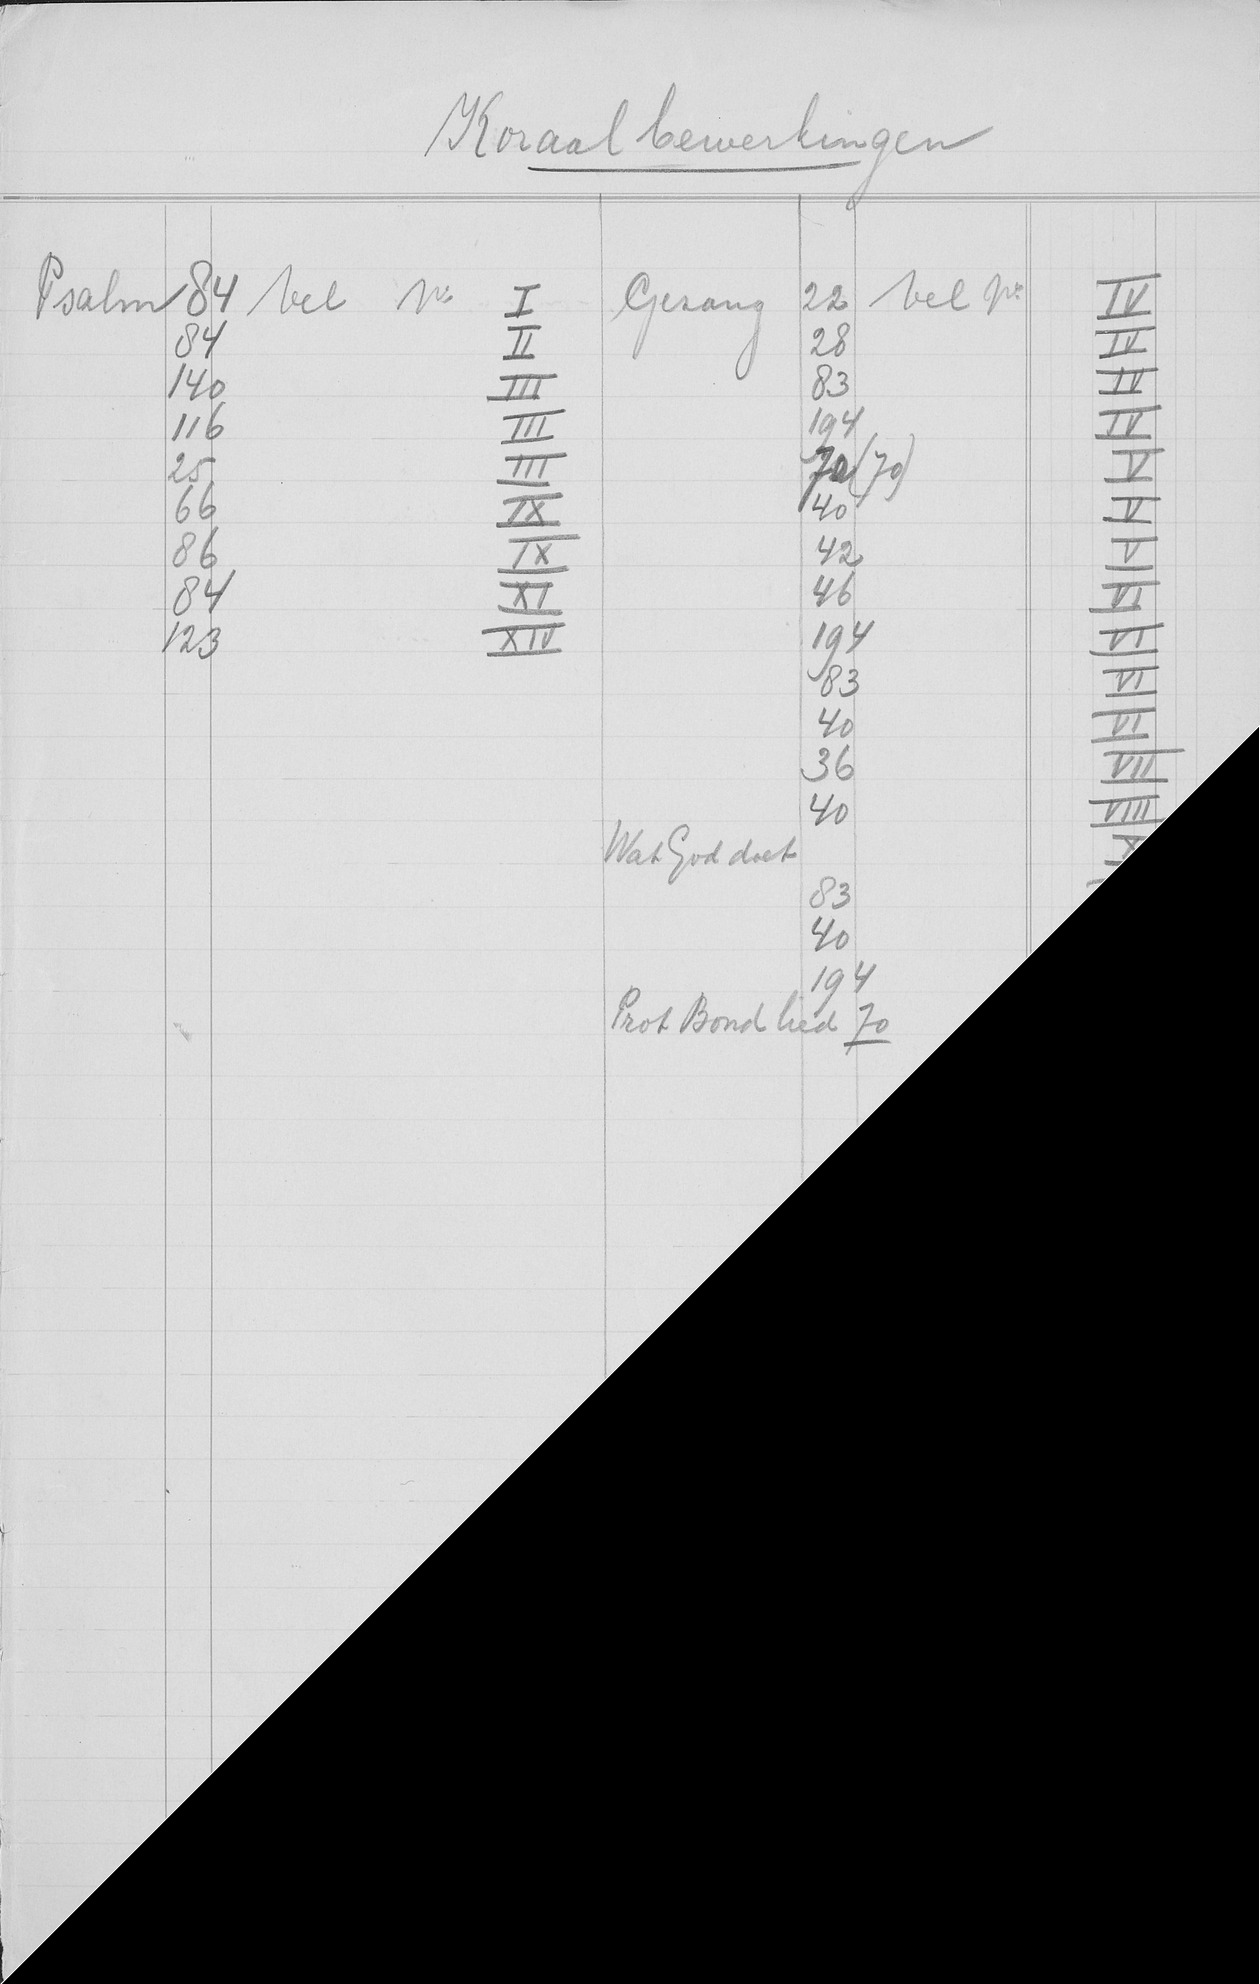 Koraalbewerkingen
Psalm 84 vel No I Gezang 22 vel No IV
84 II 28 IV
140 III 83 IV
116 III 194 IV
25 III 70 (70) V
66 IX 40 V
86 IX 42 V
84 XI 46 VI
123 XIV 194 VI
83 VI
40 VI
36 VII
40 VIII
Wat God doet
83
40
194
Prot Bond lied 70